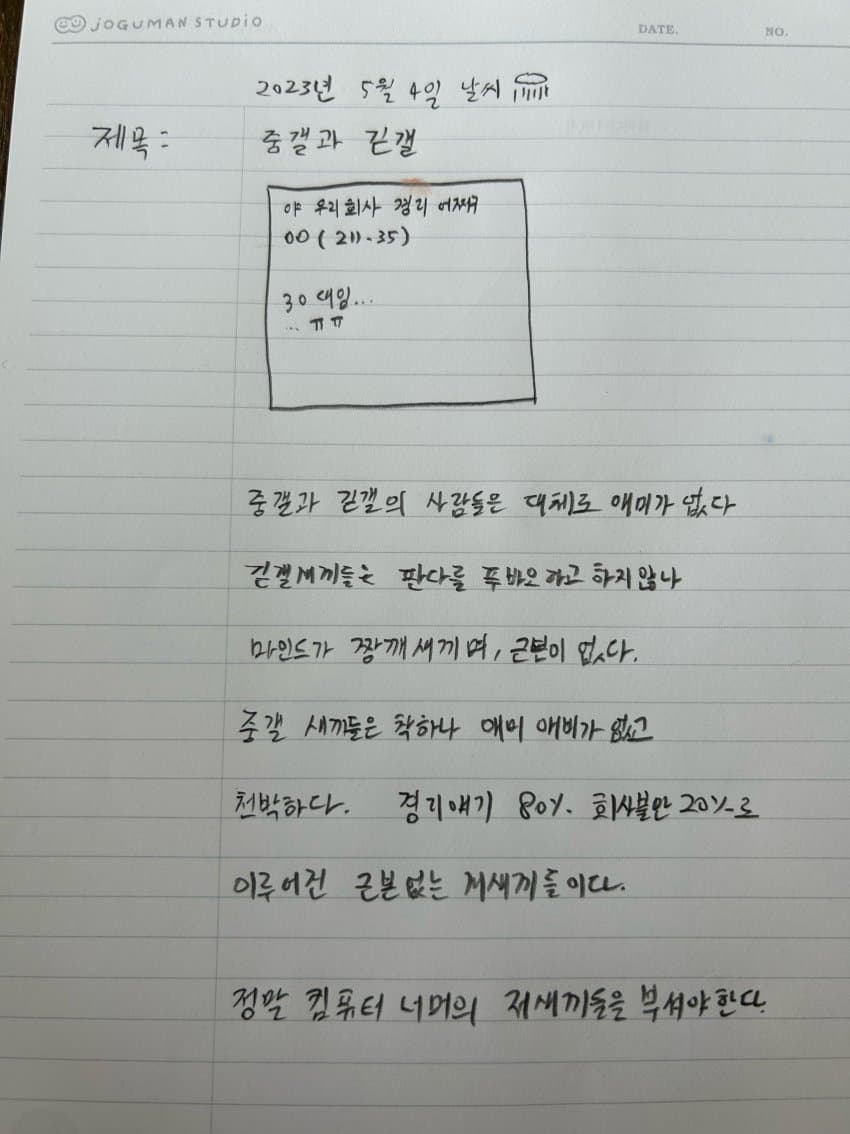 JOGUMAN STUDIO
DATE.
NO.
2023년 5월 4일 날씨
제목: 중갤과 긷갤
야 우리회사 경리 어쩌구
00(211.35)
30대임...
... ㅠㅠ
중갤과 긷갤의 사람들은 대체로 애미가 없다
긷갤새끼들은 판다를 푸바오라고 하지않나
마인드가 짱깨새끼며, 근본이 없다.
중갤 새끼들은 착하나 애미애비가 없고
천박하다. 경리얘기 80%. 회사불만 20%로
이루어진 근본없는 새끼들이다.
정말 컴퓨터 너머의 새끼들을 부셔야한다.